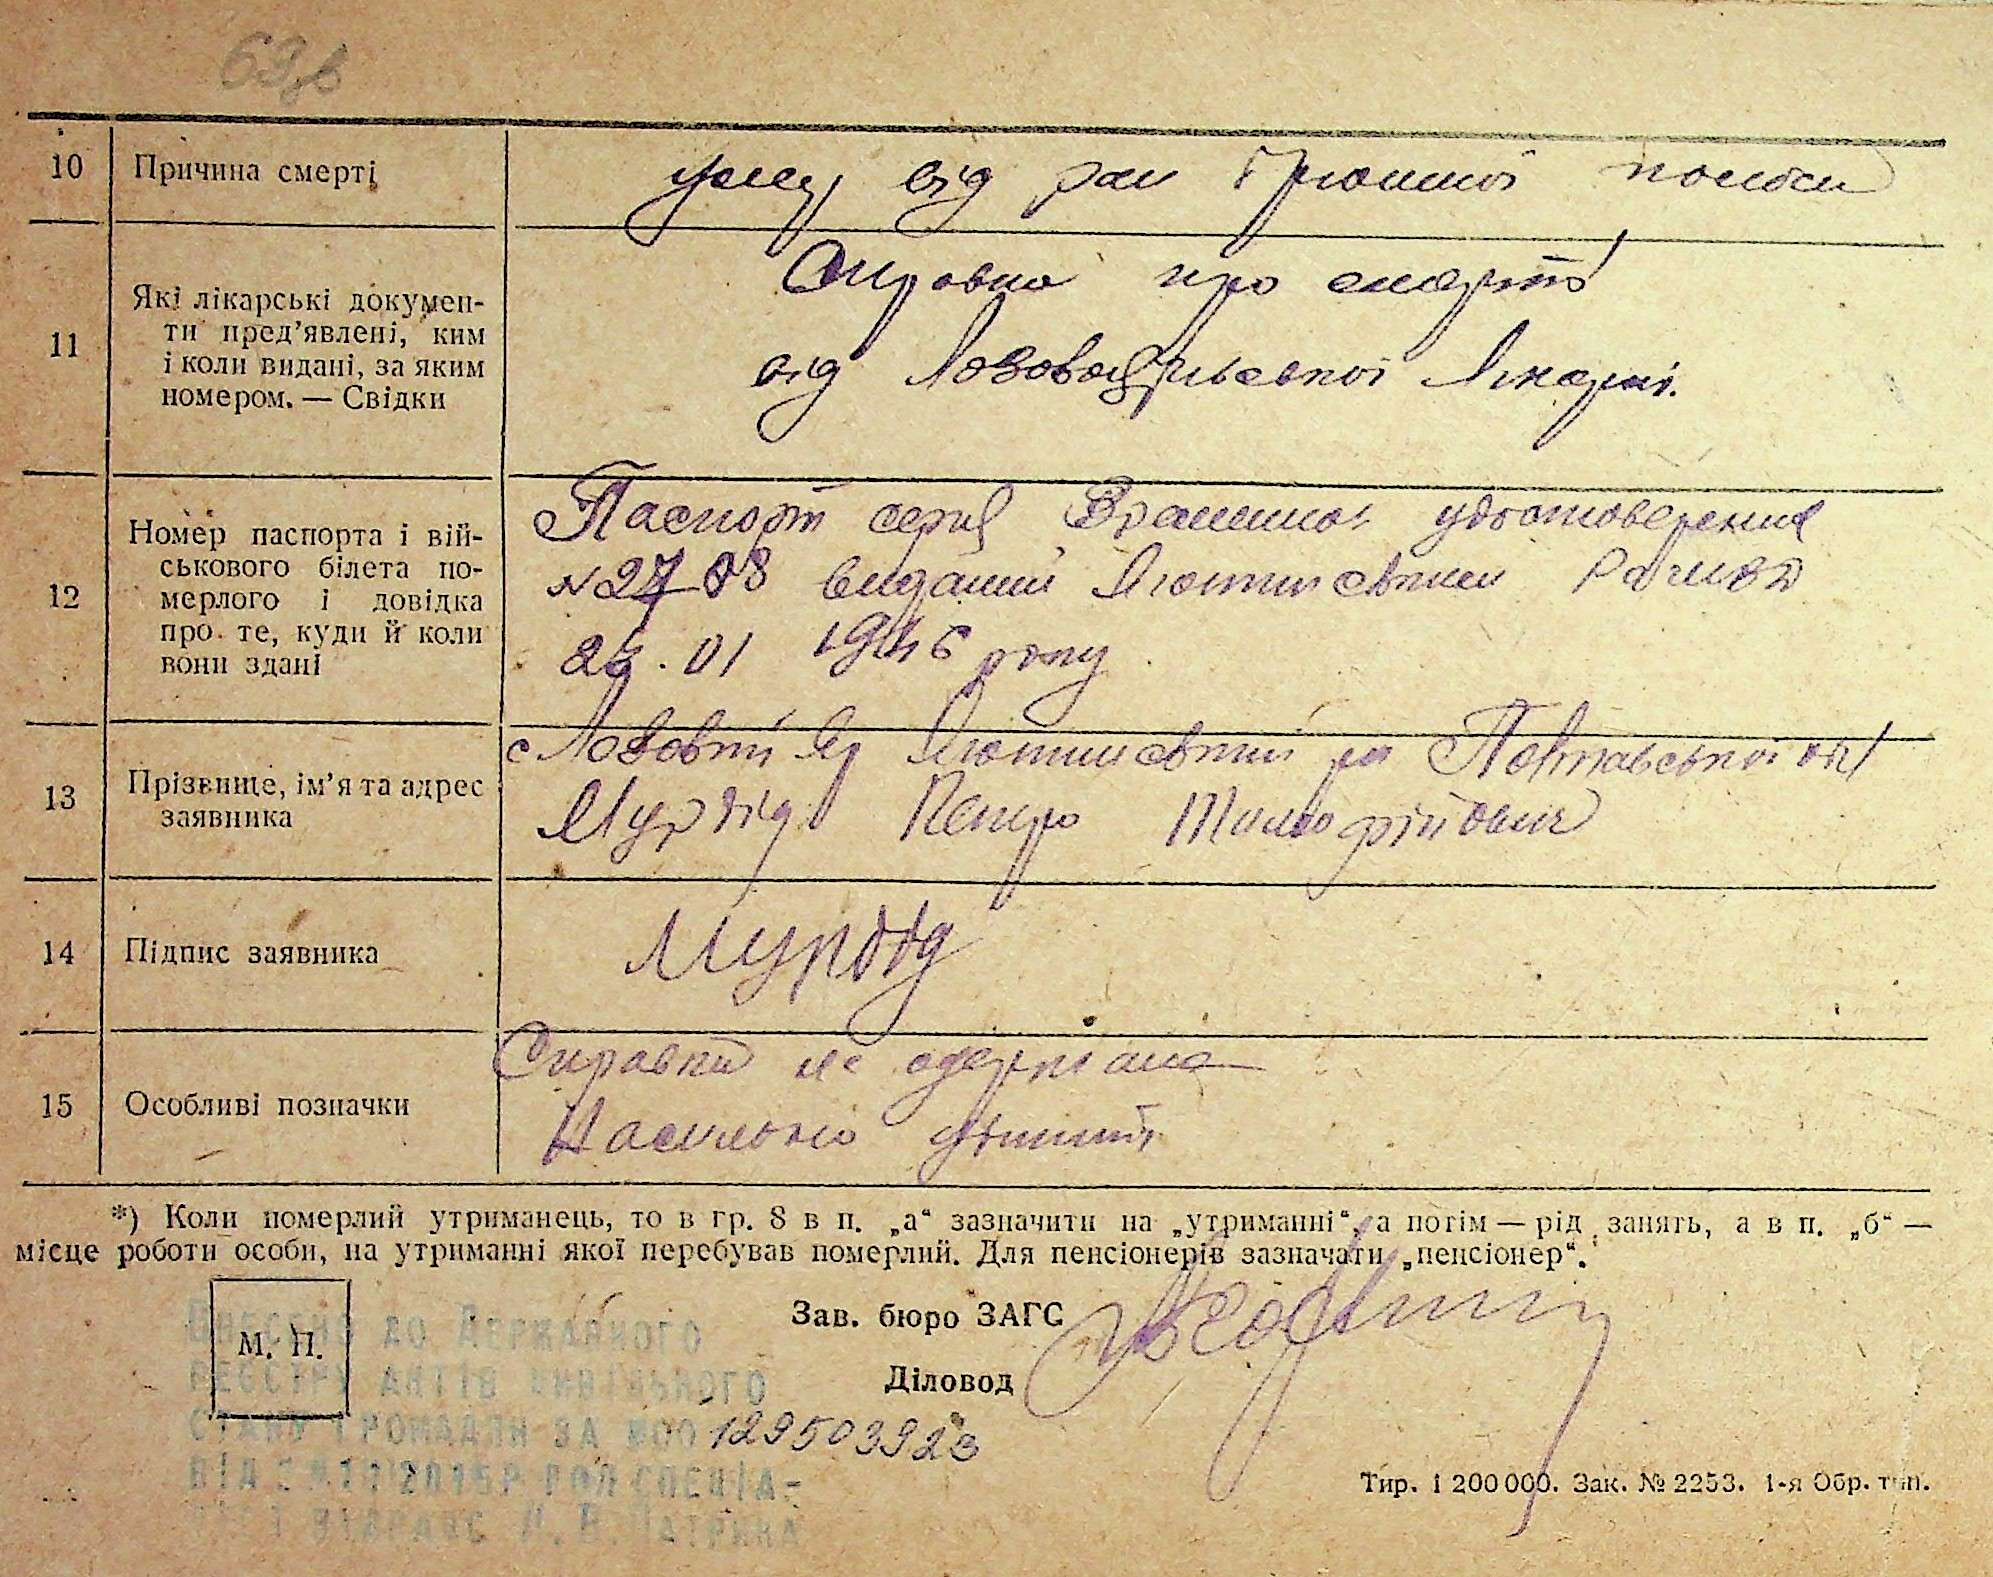 63зв
10 Причина смерті
умер від ран брюшної полости
11 Які лікарські докумен-
ти пред’явлені, ким
і коли видані, за яким
номером. — Свідки
Справка про смерть
від Лозовоярської лікарні.
12 Номер паспорта і вій-
ськового білета по-
мерлого і довідка
про те, куди й коли
вони здані
Паспорт серия Временное удостоверения
N 27 88 виданий
01 1946 року
13 Прізвище, ім’я та адрес
заявника
с Лозовий Яр Полтавської обл
Петро Тимофійович
14 Підпис заявника
15 Особливі позначки
Справки не одержано
Насильно
*) Коли померлий утриманець, то в гр. 8 в п. „а“ зазначити на „утриманні“, а потім — рід занять, а в п. „б“ —
місце роботи особи, на утриманні якої перебував померлий. Для пенсіонерів зазначати „пенсіонер“.
М. П.
Зав. бюро ЗАГС
Діловод
Внесено до Державного
реєстру актів цивільного
стану громадян за №00 129503923
Тир. 1 200 000. Зак. № 2253. 1-я Обр. тип.